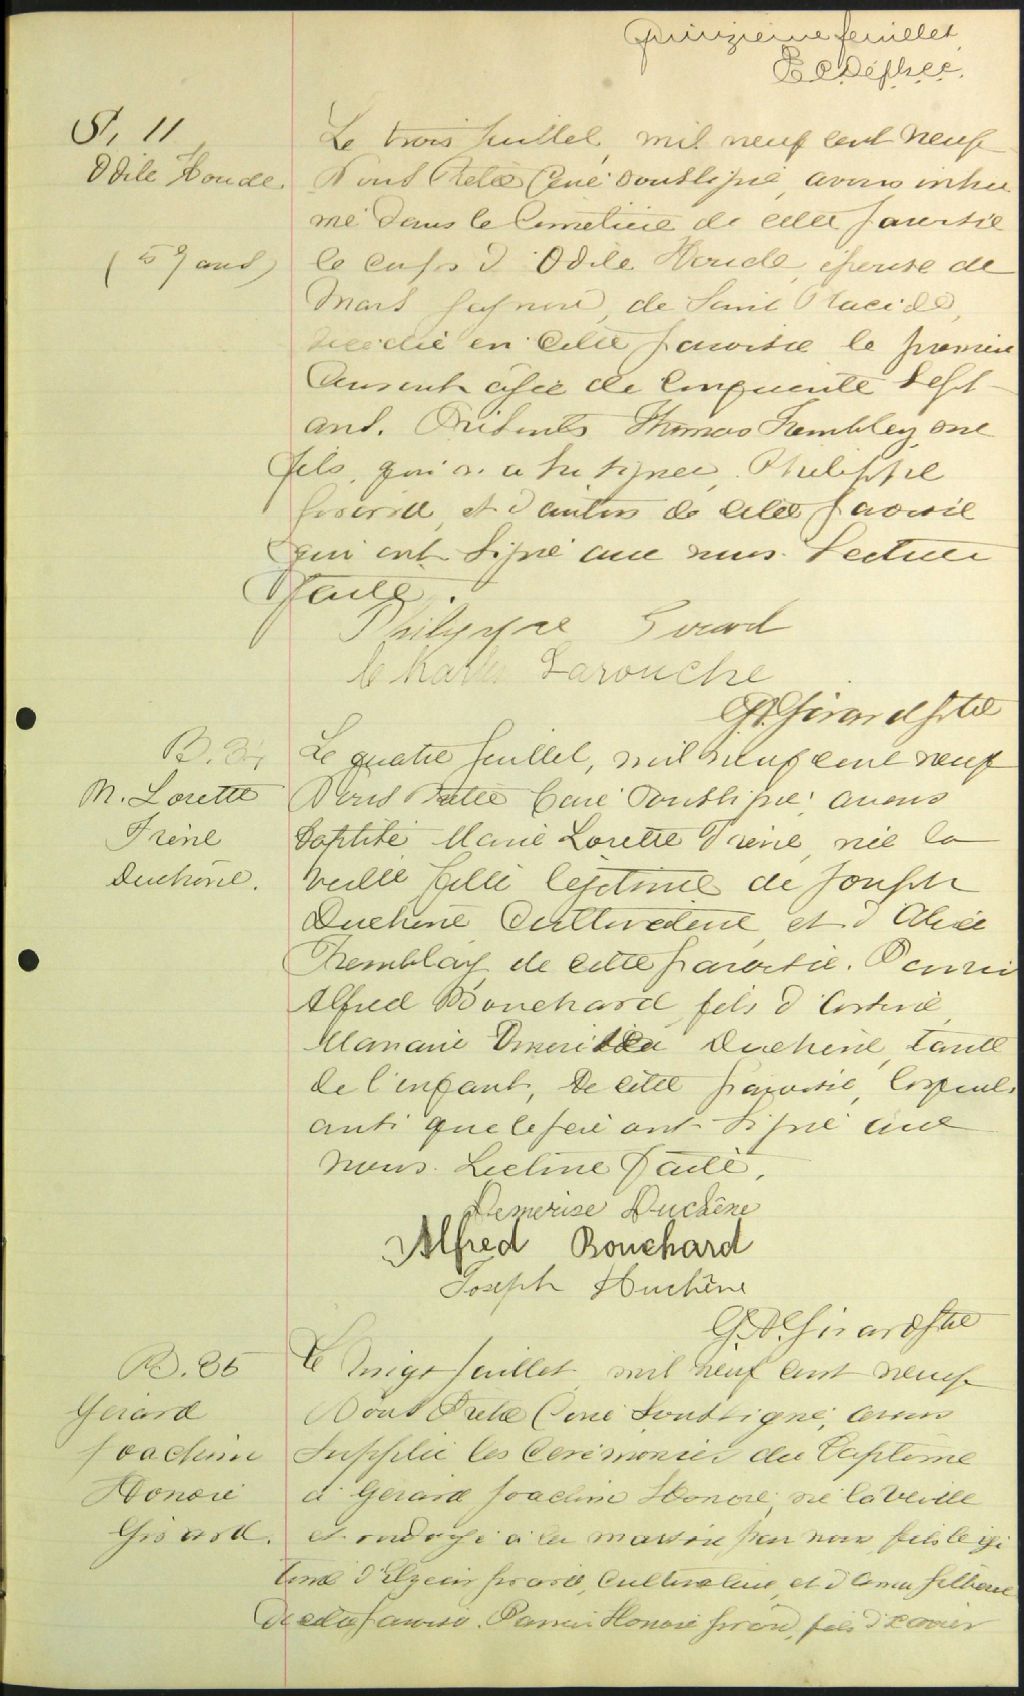 Quinzième feuillet
S. 11
Odile Houde
(57 ans)
Le trois Juillet, mil neuf cent neuf
Nous Prêtre Curé soussigné, avons inhu
mé dans le Cimetière de cette paroisse
le corps d'Odile Houde, épouse de
Mars Gagnon, de Saint Placide,
décédée en cette paroisse le premier
Courant âgée de cinquante sept
ans. Présents Thomas Tremblay, son
fils, qui n'a su signer, Philippe
Girard et d'autres de cette paroisse
qui ont signé avec nous. Lecture
faite.
Philippe Girard
Charles Larouche
G.A. Girard Ptre
B. 34
M. Lorette
Irène
Duchêne.
Le quatre Juillet, mil neuf cent neuf
Nous Prêtre Curé soussigné avons
baptisé Marie Lorette Irène, née la
veille fille légitime de Joseph
Duchêne Cultivateur, et d'Alice
Tremblay de cette paroisse. Parrain
Alfred Bouchard, fils d'
Marraine Duchêne, tante
de l'enfant, de cette paroisse, lesquels
ainsi que le père ont signé avec
nous. Lecture faite.
Demerise Duchêne
Alfred Bouchard
Joseph Duchêne
G.A. Girard Ptre
B. 35
Gérard
Joachim
Honoré
Girard.
Le vingt Juillet, mil neuf cent neuf
Nous Prêtre Curé Soussigné, avons
Supplié les Cérémonies du Baptême
à Gérard Joachim Honoré, né la veille
et ondoyé à la maison par nous, fils légi
time d'Elzéar Girard, Cultivateur, et d'
de cette paroisse. Parrain Honoré Girard, fils d'Xavier